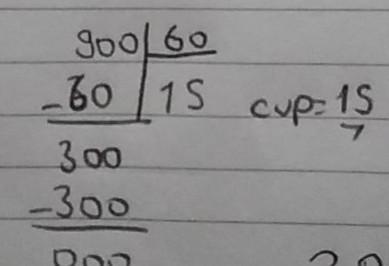 900 60
-60 15 cvp= 15
300
-300
000